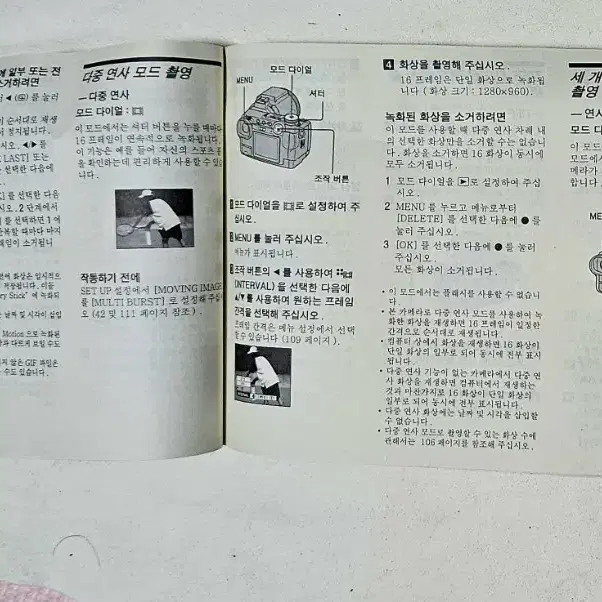 에 일부 또는 전
소거하려면
◀ (　) 를 눌러
이 순서대로 재생
서 정지됩니다.
시오. ◀/▶를
LAST] 또는
다음에
K] 를 선택한 다음
시오. 2 단계에서
] 를 선택하면 1 에
반복할 때마다 마지
프레임이 소거됩니
화상은 일시적으
적장됩니다. 이들
ry Stick" 에 녹화되
는 날짜 및 시각을 삽입
Motion 으로 녹화된
과 다르게 보일 수도
지 않은 GIF 파일은
수도 있습니다.
다중 연사 모드 촬영
— 다중 연사
모드 다이얼 :
이 모드에서는 셔터 버튼을 누를 때마다
16 프레임이 연속적으로 녹화됩니다.
이 기능은 예를 들어 자신의 스포츠 폼
을 확인하는데 편리하게 사용할 수 있습
니다.
작동하기 전에
SET UP 설정에서 [MOVING IMAGE]
를 [MULTI BURST] 로 설정해 주십시
오 (42 및 111 페이지 참조).
모드 다이얼
MENU
셔터
조작 버튼
1 모드 다이얼을 로 설정하여 주
십시오.
2 MENU 를 눌러 주십시오.
메뉴가 표시됩니다.
3 조작 버튼의 ◀ 를 사용하여
(INTERVAL) 을 선택한 다음에
▲/▼를 사용하여 원하는 프레임
간격을 선택해 주십시오.
프레임 간격은 메뉴 설정에서 선택
할 수 있습니다 (109 페이지).
4 화상을 촬영해 주십시오.
16 프레임은 단일 화상으로 녹화됩
니다 (화상 크기 : 1280×960).
녹화된 화상을 소거하려면
이 모드를 사용할 때 다중 연사 차례 내
의 선택한 화상만을 소거할 수는 없습니
다. 화상을 소거하면 16 화상이 동시에
모두 소거됩니다.
1 모드 다이얼을 ▶로 설정하여 주십
시오.
2 MENU 를 누르고 메뉴로부터
[DELETE] 를 선택한 다음에 ●를
눌러 주십시오.
3 [OK] 를 선택한 다음에 ●를 눌러
주십시오.
모든 화상이 소거됩니다.
• 이 모드에서는 플래시를 사용할 수 없습니
다.
• 본 카메라로 다중 연사 모드를 사용하여 녹
화한 화상을 재생하면 16 프레임이 일정한
간격으로 순서대로 재생됩니다.
• 컴퓨터 상에서 화상을 재생하면 16 화상이
단일 화상의 일부로 되어 동시에 전부 표시
됩니다.
• 다중 연사 기능이 없는 카메라에서 다중 연
사 화상을 재생하면 컴퓨터에서 재생하는
것과 마찬가지로 16 화상이 단일 화상의
일부로 되어 동시에 전부 표시됩니다.
• 다중 연사 화상에는 날짜 및 시각을 삽입할
수 없습니다.
• 다중 연사 모드로 촬영할 수 있는 화상 수에
관해서는 106 페이지를 참조해 주십시오.
세 개
촬영
— 연사
모드 다
이 모드
모드에서
메라가
합니다
ME